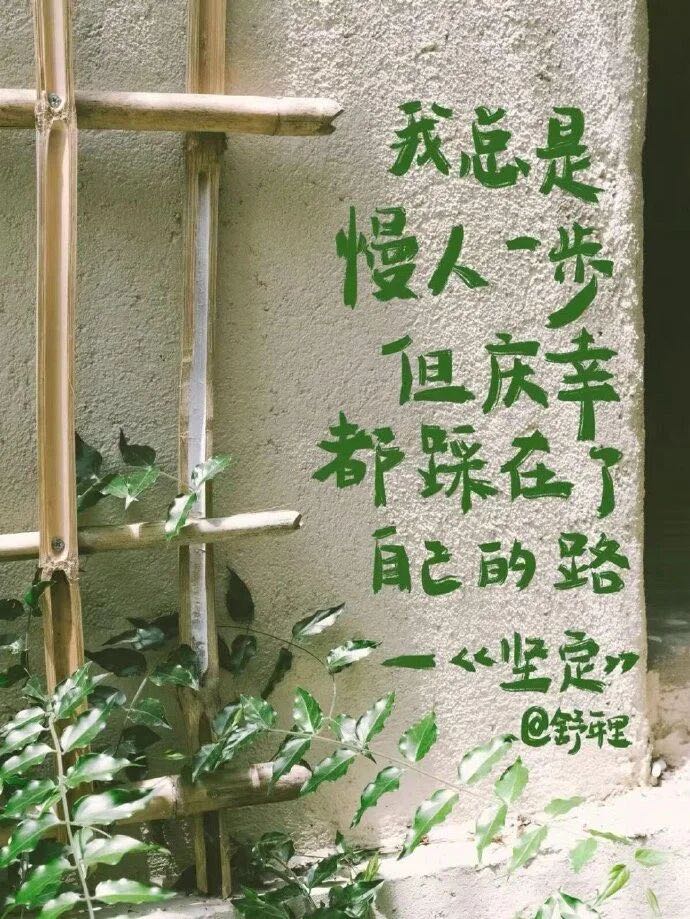 我总是
慢人一步
但庆幸
都踩在了
自己的路
—《坚定》
@舒年里